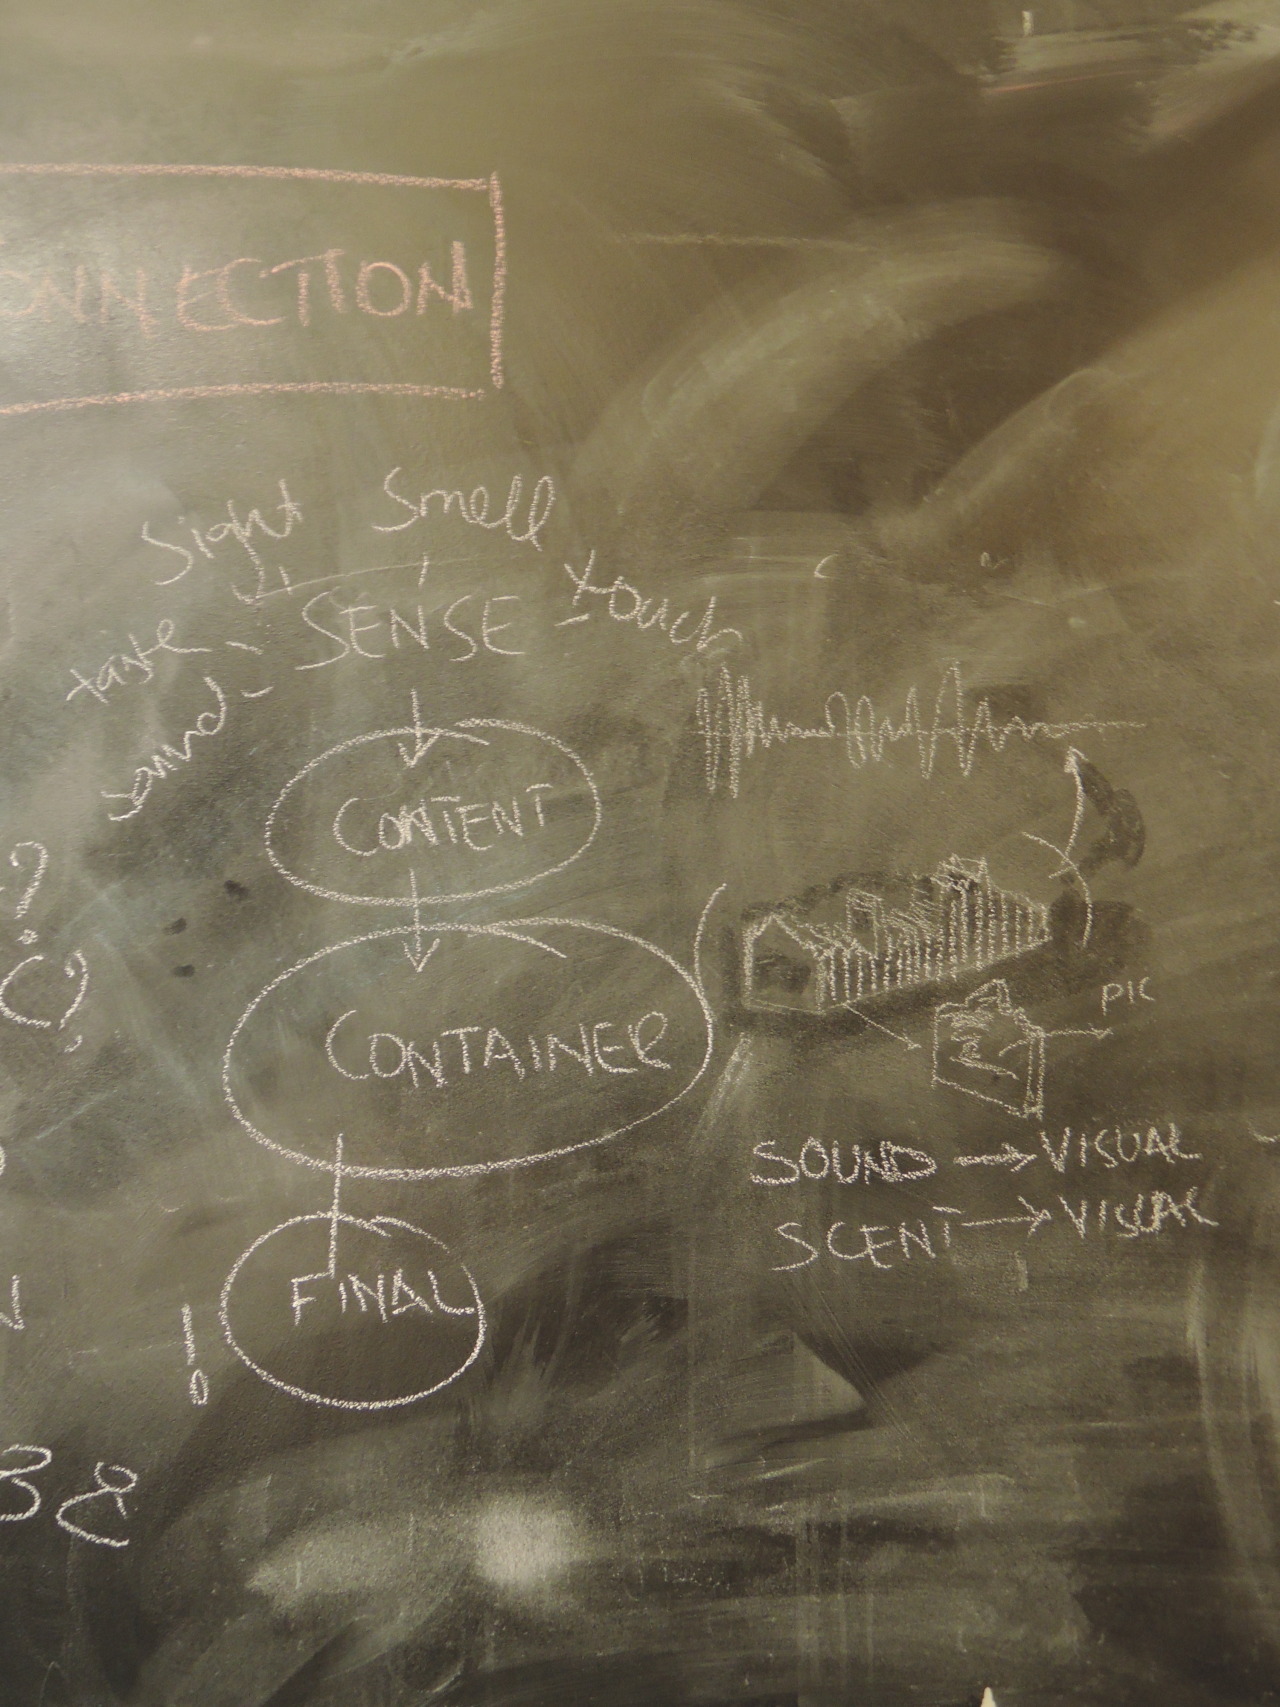 CONNECTION
Sight Smell
taste SENSE touch
sound
CONTENT
?
CONTAINER
PIC
SOUND → VISUAL
SCENT → VISUAL
FINAL
!